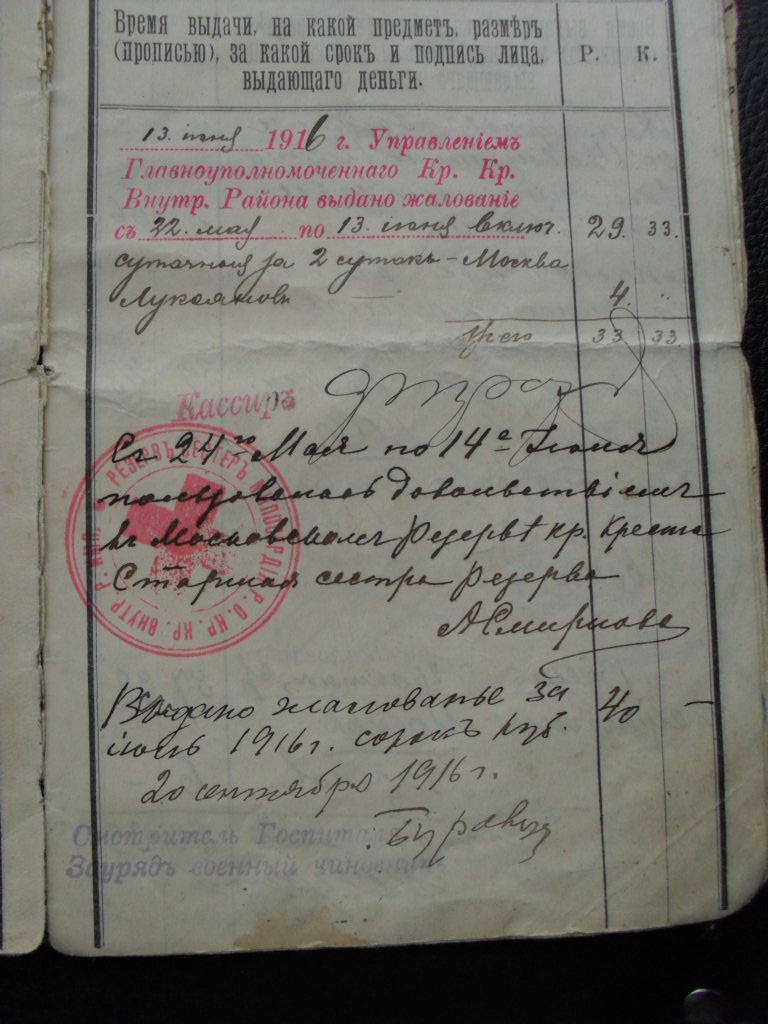 Время выдачи, на какой предметъ, размѣръ
(прописью), за какой срокъ и подпись лица,
выдающаго деньги.
Р.
К.
13. іюня 1916 г. Управленіемъ
Главноуполномоченнаго Кр. Кр.
Внутр. Района выдано жалованіе
съ 22. мая по 13. іюня включ. 29. 33.
суточныя за 2 сутокъ – Москва
Лукояновъ — 4. "
Всего 33 33
Кассиръ
Съ 24го Мая по 14е Іюня
пользовалась довольствіемъ
въ Московскомъ Резервѣ кр. Креста
Старшая сестра резерва
А Смирнова
РЕЗЕРВЪ СЕСТЕРЪ МИЛОСЕРДІЯ Р. О. КР. КР. ВНУТР. Р.
Выдано жалованье за 40 —
іюль 1916 г. сорокъ руб.
20 сентября 1916 г.
Смотритель Госпиталя
Заурядъ военный чиновникъ